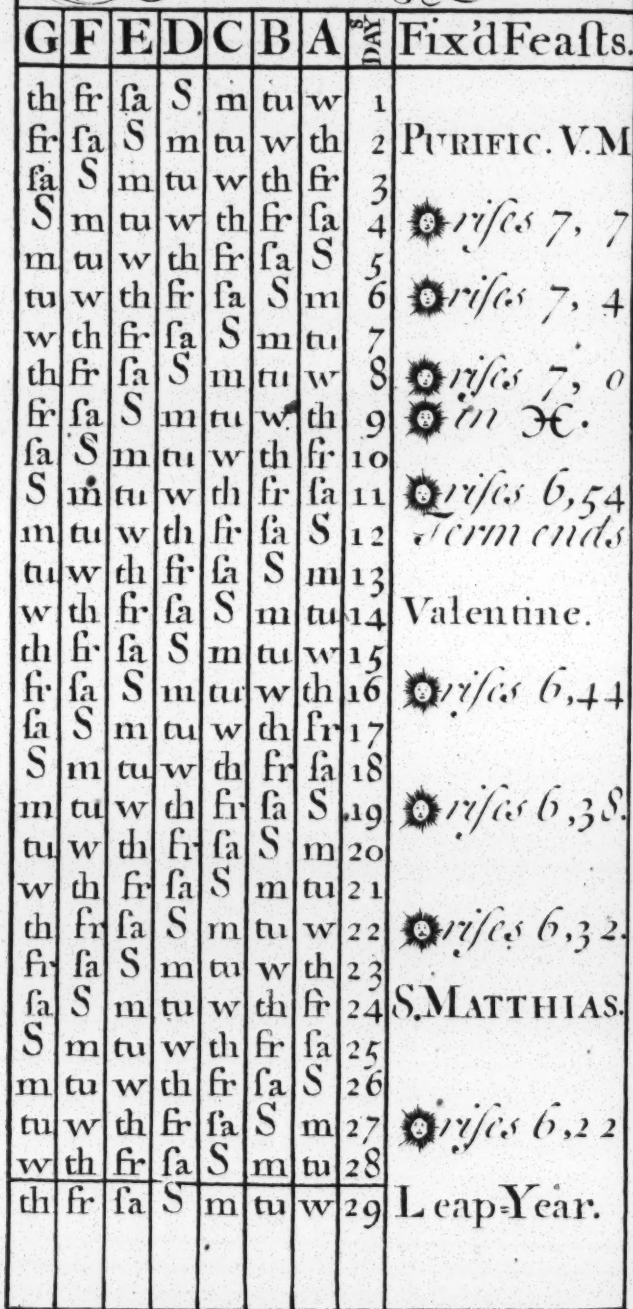 G F E D C B A DAYS Fix'd Feaſts.
th fr ſa S m tu w 1
fr ſa S m tu w th 2 PURIFIC. V.M
ſa S m tu w th fr 3
S m tu w th fr ſa 4 riſes 7, 7
m tu w th fr ſa S 5
tu w th fr ſa S m 6 riſes 7, 4
w th fr ſa S m tu 7
th fr ſa S m tu w 8 riſes 7, 0
fr ſa S m tu w th 9 in ♓.
ſa S m tu w th fr 10
S m tu w th fr ſa 11 riſes 6,54
m tu w th fr ſa S 12 Term ends
tu w th fr ſa S m 13
w th fr ſa S m tu 14 Valentine.
th fr ſa S m tu w 15
fr ſa S m tu w th 16 riſes 6,44
ſa S m tu w th fr 17
S m tu w th fr ſa 18
m tu w th fr ſa S 19 riſes 6,38.
tu w th fr ſa S m 20
w th fr ſa S m tu 21
th fr ſa S m tu w 22 riſes 6,32.
fr ſa S m tu w th 23
ſa S m tu w th fr 24 S. MATTHIAS.
S m tu w th fr ſa 25
m tu w th fr ſa S 26
tu w th fr ſa S m 27 riſes 6,22
w th fr ſa S m tu 28
th fr ſa S m tu w 29 Leap=Year.